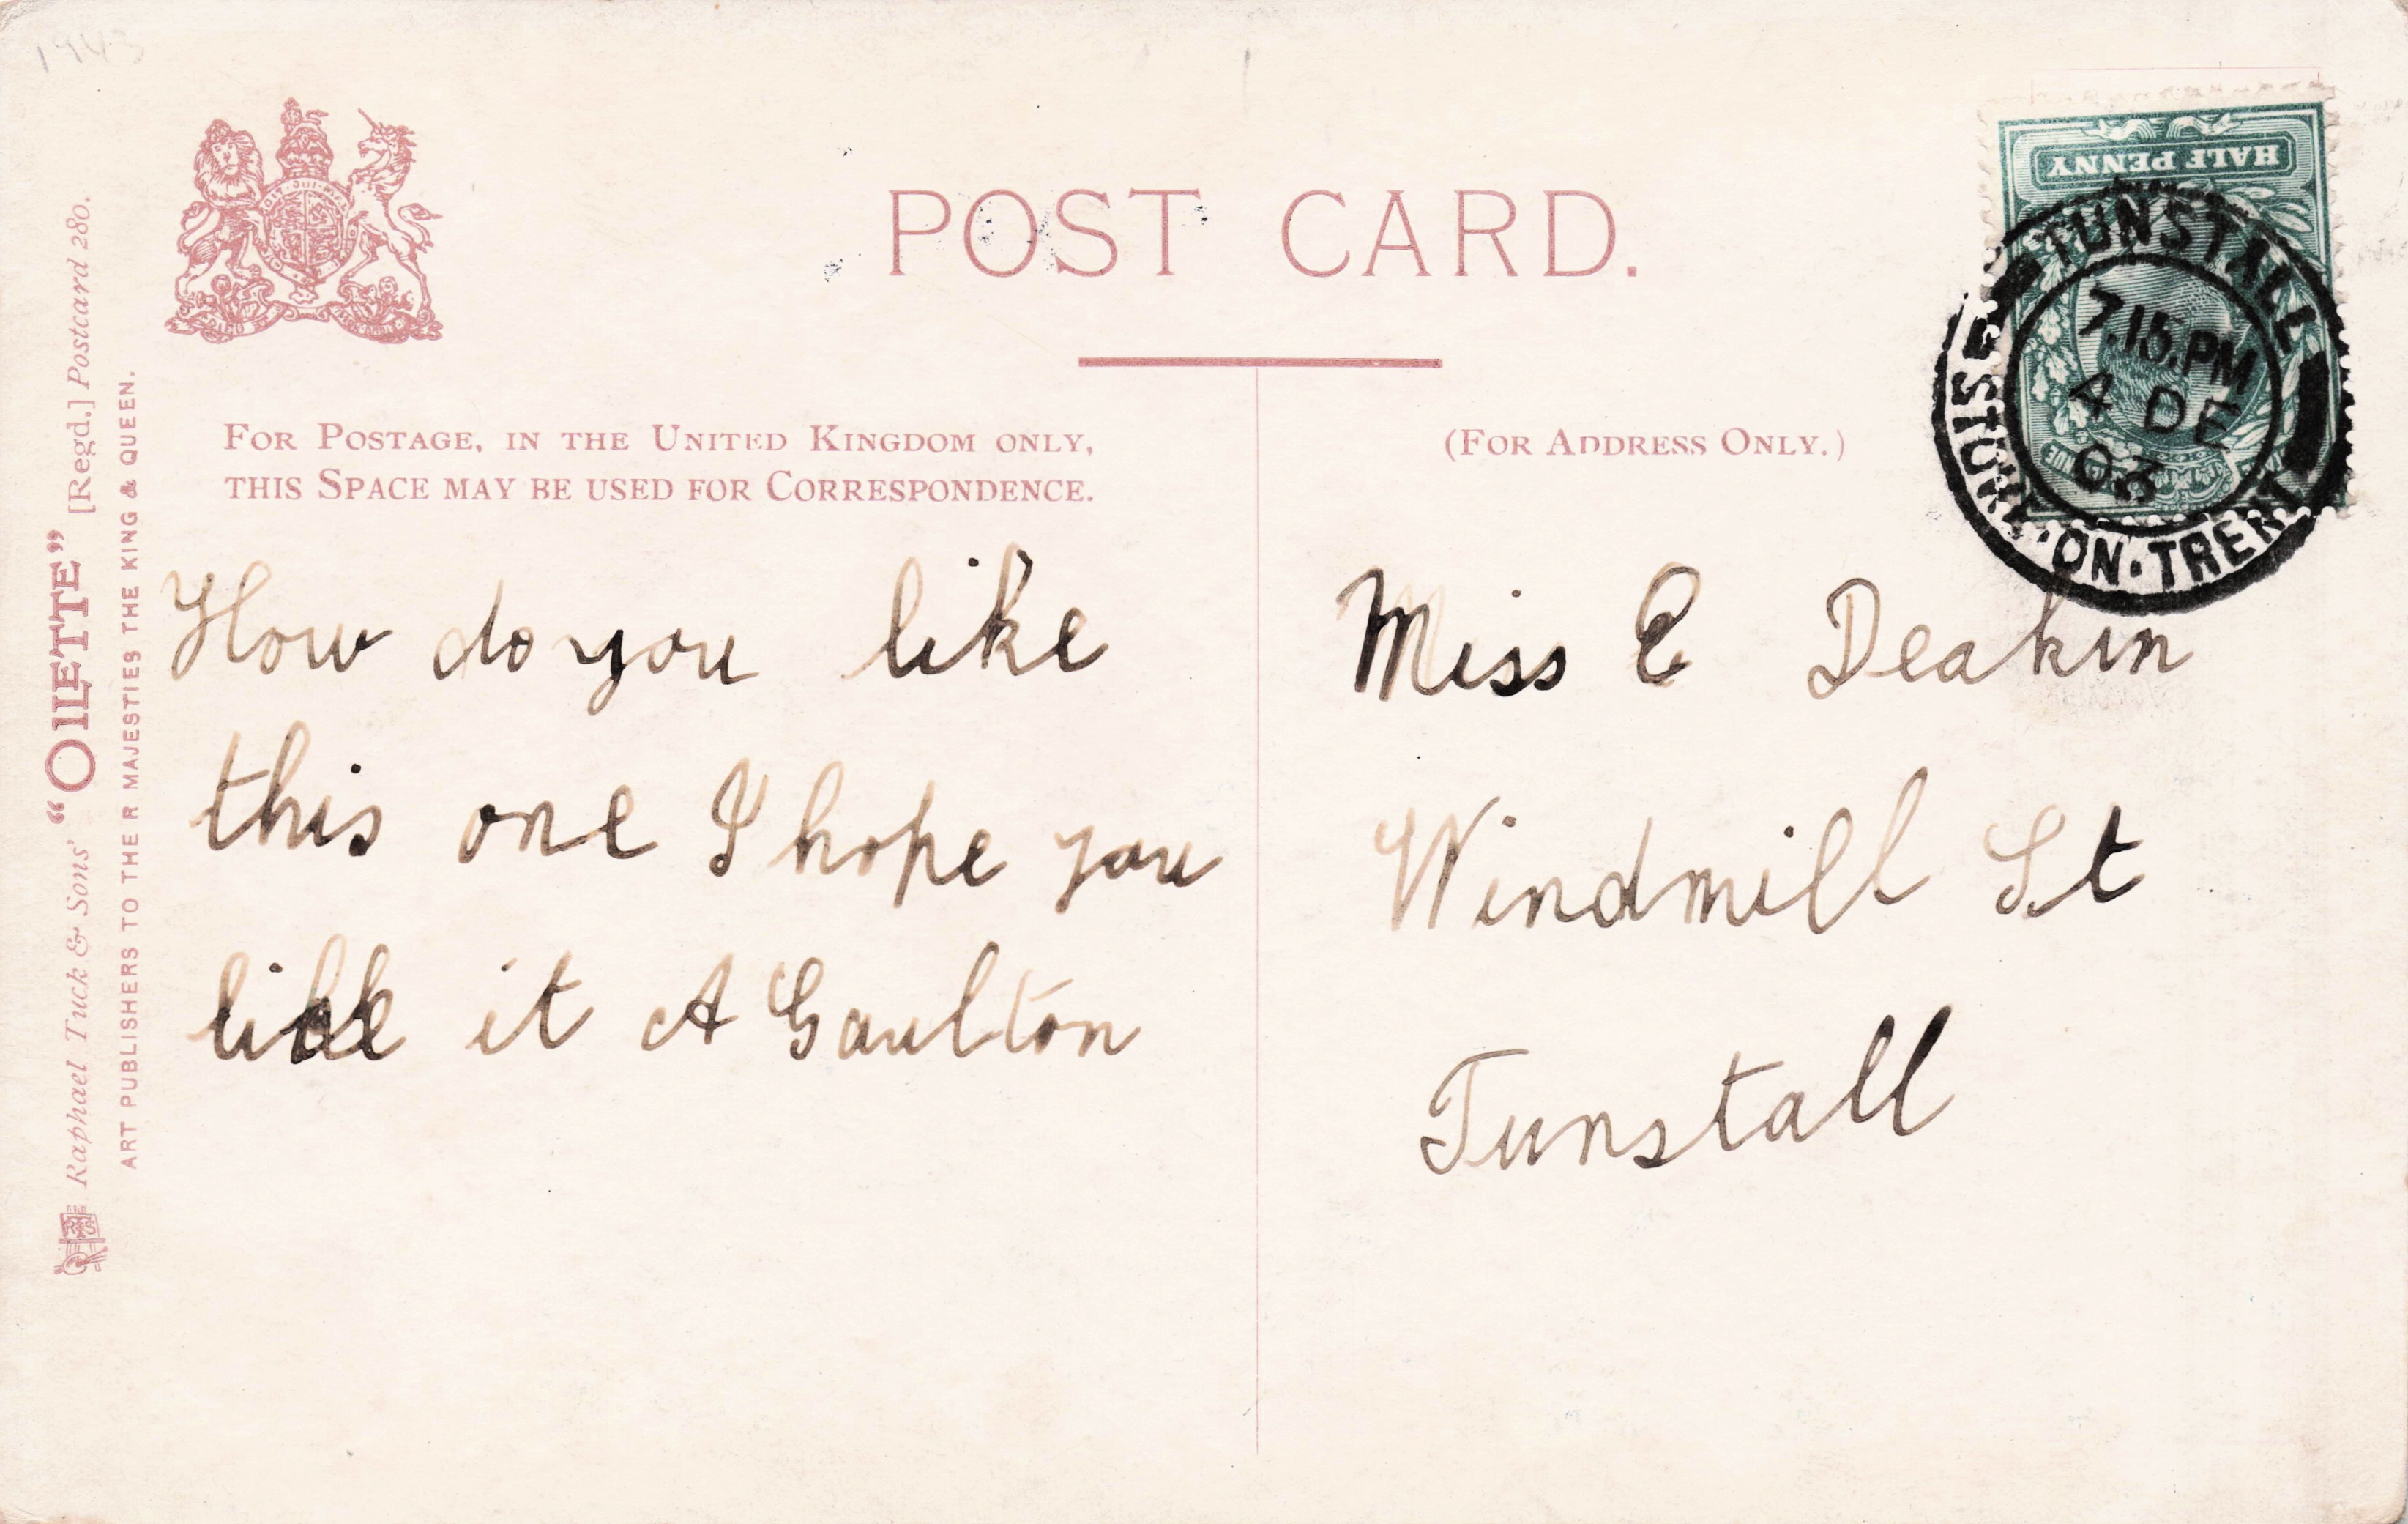 1943
POST CARD.
FOR POSTAGE, IN THE UNITED KINGDOM ONLY,
THIS SPACE MAY BE USED FOR CORRESPONDENCE.
How do you like
this one I hope you
like it A Gaulton
(FOR ADDRESS ONLY.)
Miss E Deakin
Windmill St
Tunstall
HALF PENNY
TUNSTALL
7.15.PM
4 DE
03
STOKE·ON·TRENT
Raphael Tuck & Sons' “OILETTE” [Regd.] Postcard 280.
ART PUBLISHERS TO THE R MAJESTIES THE KING & QUEEN.